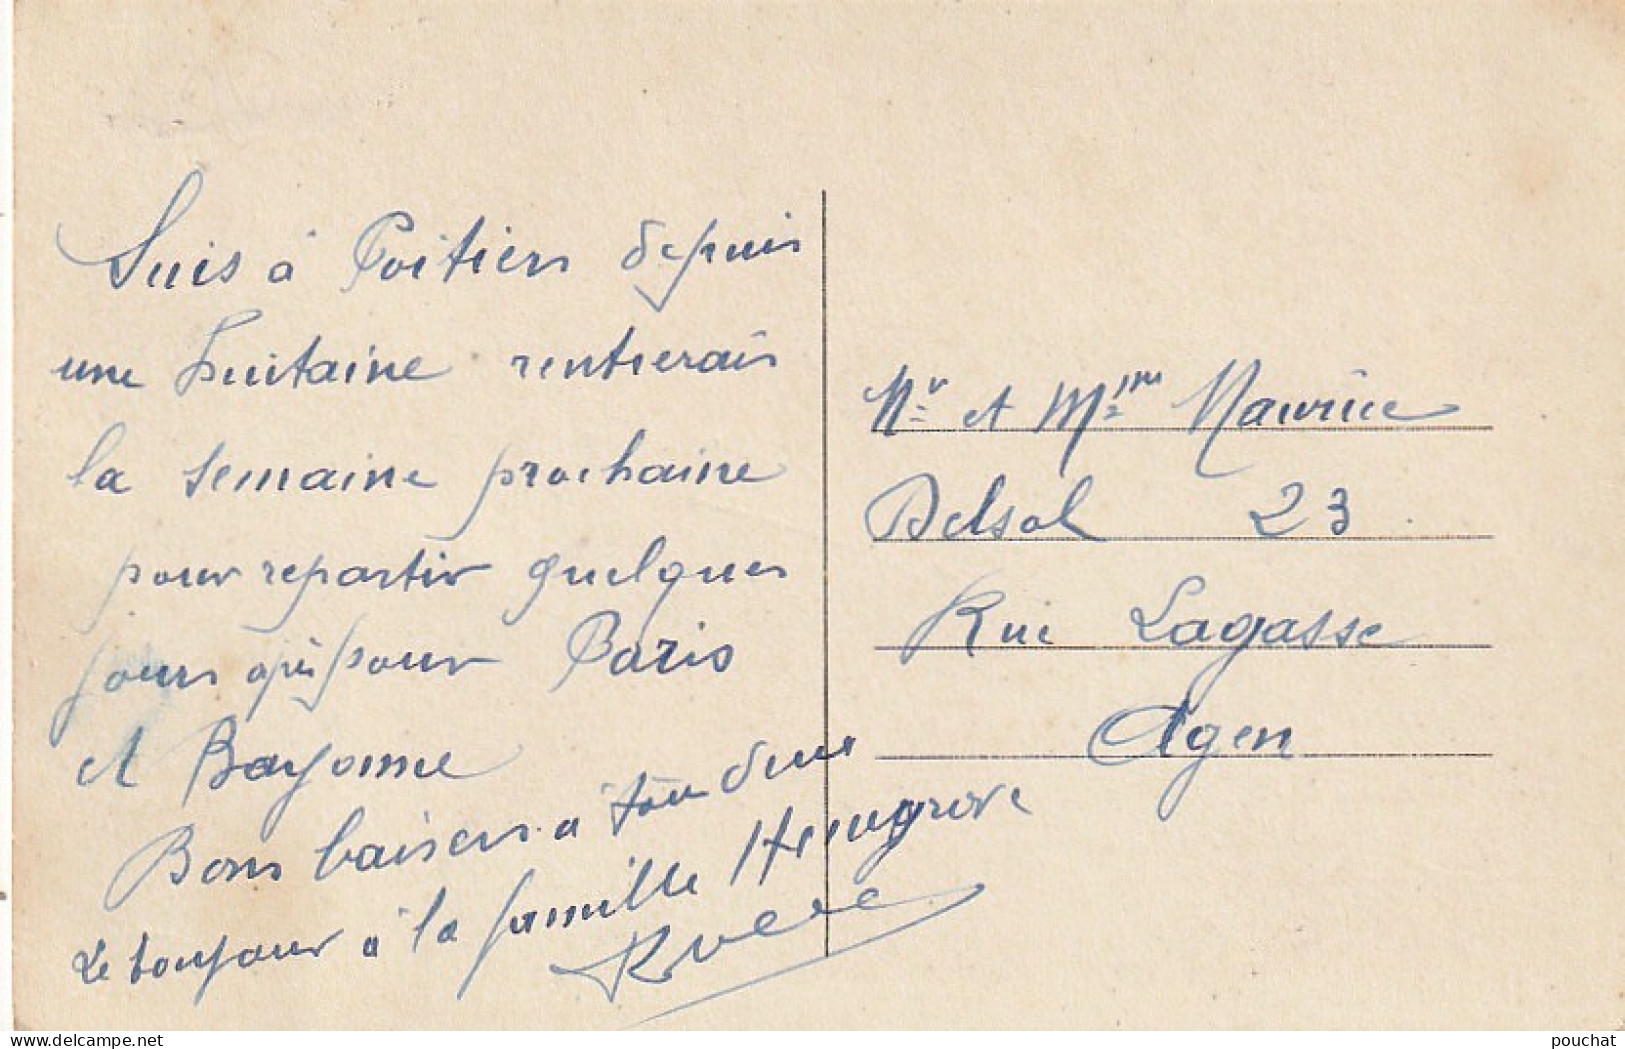 Suis à Poitiers depuis
une huitaine rentrerais
la semaine prochaine
pour repartir quelques
jours après pour Paris
et Bayonne
Bons baisers à tous deux
Le bonjour à la famille
Mr et Mme Maurice
Delsol 23
Rue Lagasse
Agen
delcampe.net
pouchat